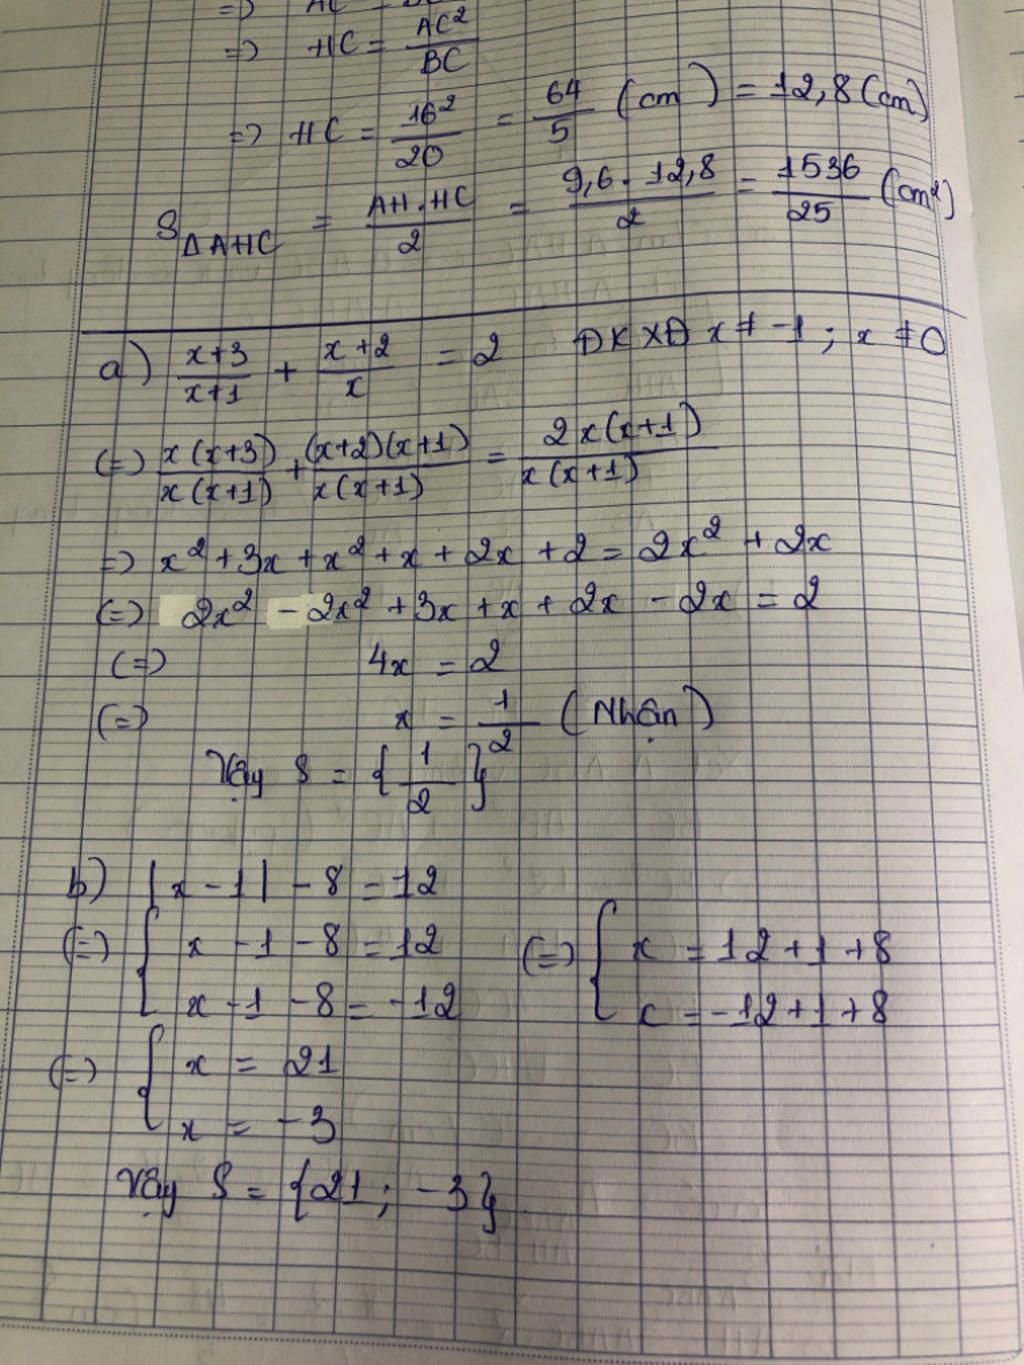 => AC
=> HC = AC²/BC
=> HC = 16²/20 = 64/5 (cm) = 12,8 (cm)
S ΔAHC = AH.HC/2 = 9,6 . 12,8/2 = 1536/25 (cm²)
a) x+3/x+1 + x+2/x = 2 ĐKXĐ x ≠ -1 ; x ≠ 0
(=) x(x+3)/x(x+1) + (x+2)(x+1)/x(x+1) = 2x(x+1)/x(x+1)
=> x² + 3x + x² + x + 2x + 2 = 2x² + 2x
(=) 2x² - 2x² + 3x + x + 2x - 2x = 2
(=) 4x = 2
(=) x = 1/2 (Nhận)
Vậy S = {1/2}
b) |x - 1| - 8 = 12
(=) { x - 1 - 8 = 12 (=) { x = 12 + 1 + 8
x - 1 - 8 = -12 x = -12 + 1 + 8
(=) { x = 21
x = -3
Vậy S = {21 ; -3}